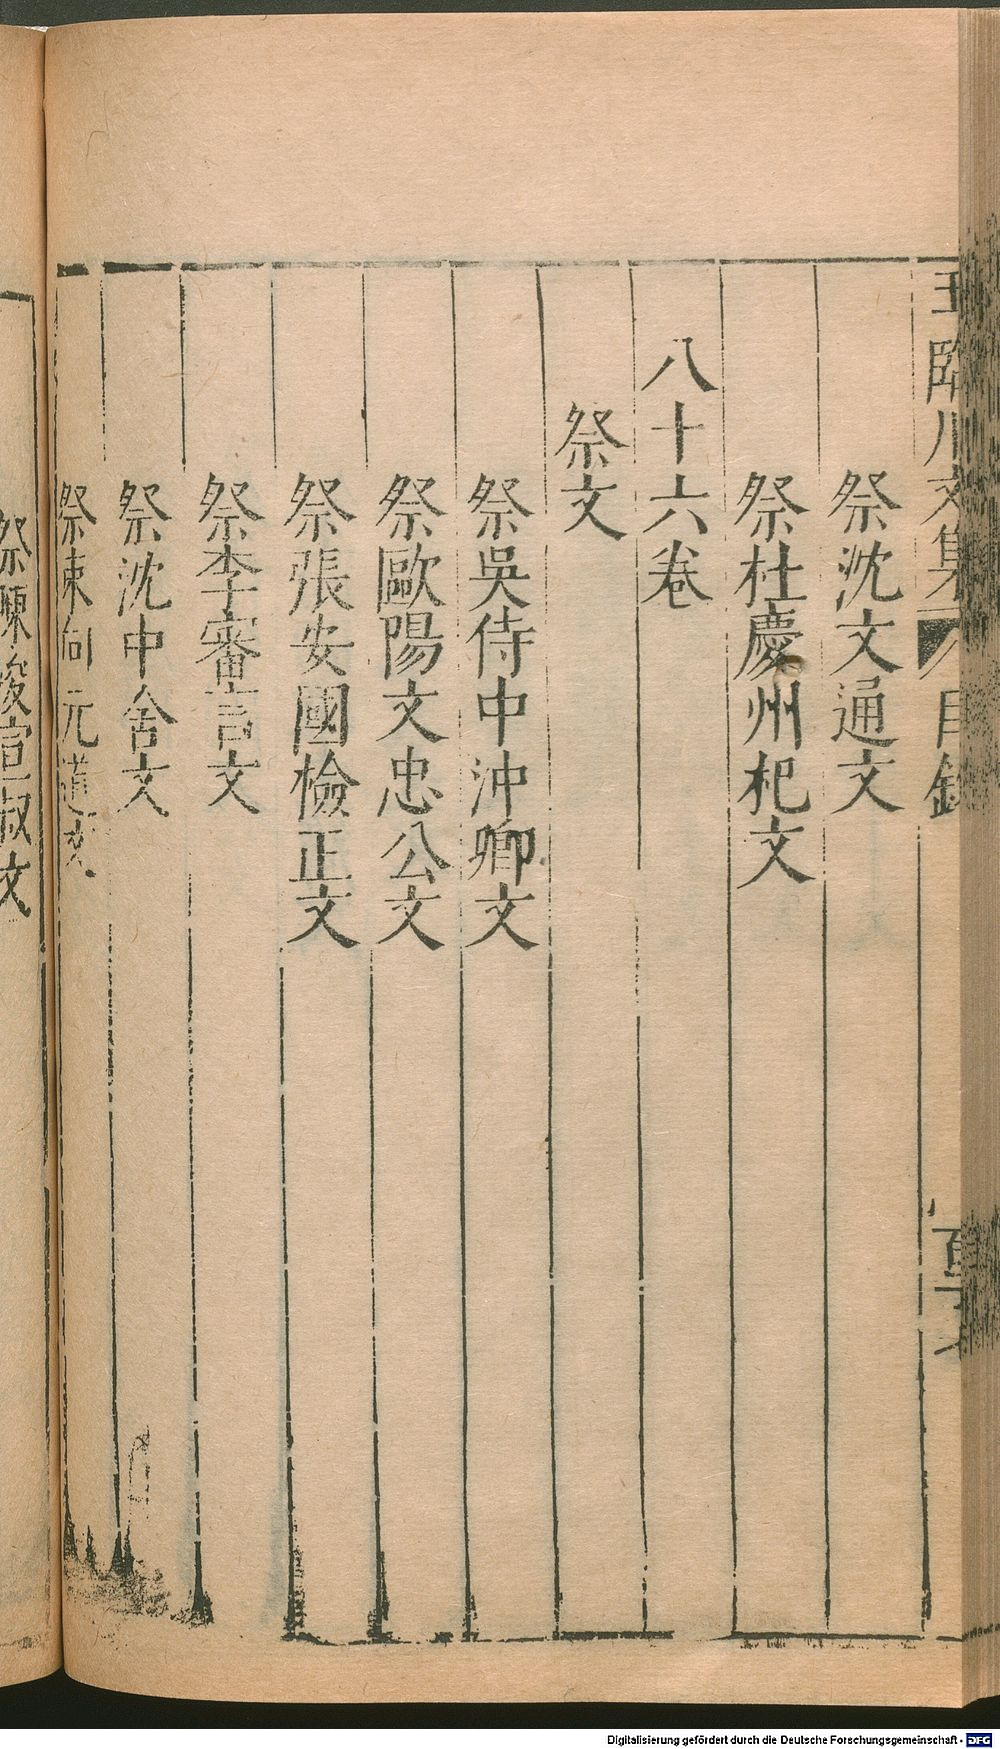 王臨川文集 目錄
祭沈文通文
祭杜慶州杞文
八十六卷
祭文
祭吳侍中沖卿文
祭歐陽文忠公文
祭張安國檢正文
祭李審言文
祭沈中舍文
祭束向元道文
祭陳浚宣叔文
Digitalisierung gefördert durch die Deutsche Forschungsgemeinschaft - DFG